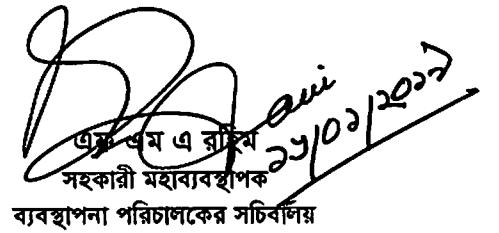 এফ এম এ রহিম
সহকারী মহাব্যবস্থাপক
ব্যবস্থাপনা পরিচালকের সচিবালয়